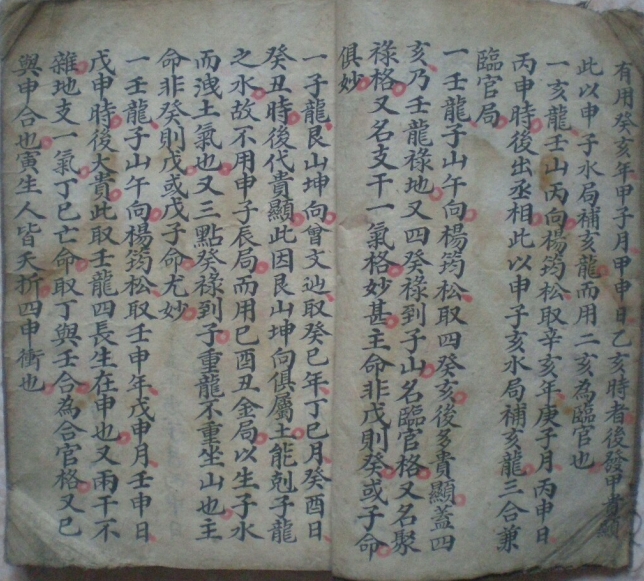 有用癸亥年甲子月甲申日乙亥時者後發甲貴顯
此以申子水局補亥龍而用二亥為臨官也
一亥龍壬山丙向楊筠松取辛亥年庚子月丙申日
丙申時後出丞相此以申子亥水局補亥龍三合兼
臨官局
一壬龍子山午向楊筠松取四癸亥後多貴顯蓋四
亥乃壬龍祿地又四癸祿到子山名臨官格又名聚
祿格又名支干一氣格妙甚主命非戊則癸或子命
俱妙
一子龍艮山坤向曾文辿取癸巳年丁巳月癸酉日
癸丑時後代貴顯此因艮山坤向俱屬土能剋子龍
之水故不用申子辰局而用巳酉丑金局以生子水
而洩土氣也又三點癸祿到子重龍不重坐山也主
命非癸則戊或戊子命尤妙
一壬龍子山午向楊筠松取壬申年戊申月壬申日
戊申時後大貴此取壬龍四長生在申也又兩干不
雜地支一氣丁巳亡命取丁與壬合為合官格又巳
與申合也寅生人皆夭折四申衝也